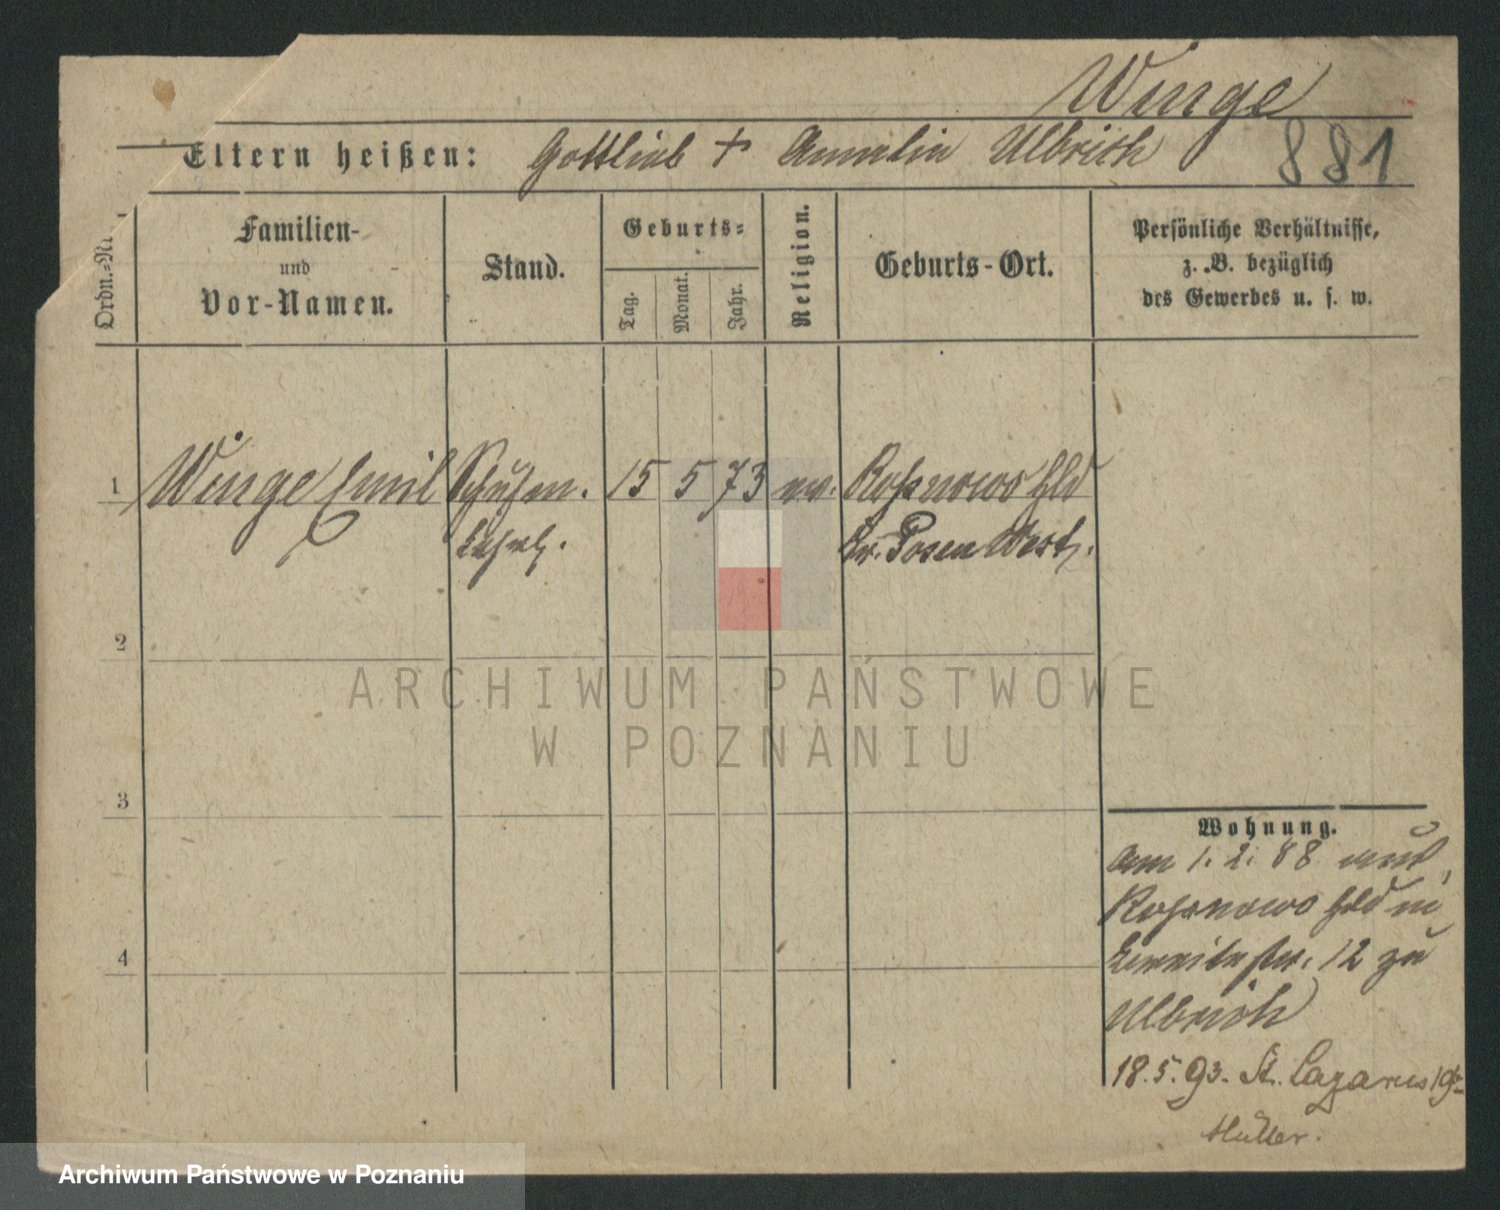 Winge
881
Eltern heißen: Gottlieb + Ulbrich
Ordn.=Nr
Familien-
und
Vor-Namen.
Stand.
Geburts=
Tag.
Monat.
Jahr.
Religion.
Geburts-Ort.
Persönliche Verhältnisse,
z. B. bezüglich
des Gewerbes u. s. w.
1 Winge Emil 15 5 73 ev. Rosnowo Hld
Kr. Posen West.
2
3
4
ARCHIWUM PAŃSTWOWE
W POZNANIU
Wohnung.
am 1. 2. 88
Rosnowo Hld in
12 zu
Ulbrich
18. 5. 93. St. Lazarus 19
Müller.
Archiwum Państwowe w Poznaniu